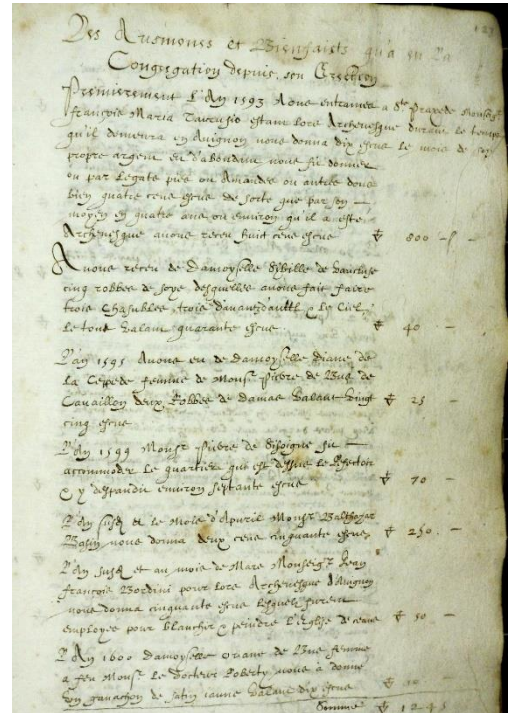 Des Ausmones et Bienfaicts qu'a eu La
Congregation depuis son Erection
127
Premierement L'An 1593 Nous entrames a Ste Praxede Monseigr
françois Maria Taurusio estant lors Archevesque durant le temps
qu'il demeura en Avignon nous donna dix escus Le mois de son
propre argent et d'abondant nous fit donner
ou par Legats pies ou Amandes ou autres dons
bien quatre cens escus de sorte que par son
moyen en quatre ans ou environ qu'il a esté
Archevesque avons receu huit cens escus 800 -
Avons receu de Damoyselle Sibille de Vaucluse
cinq robbes de soye desquelles avons fait faire
trois Chasubles trois davant d'autel & Le Ciel
Le tout valant quarante escus 40 -
L'an 1595 Avons eu de Damoyselle Diane de
La Ceppede femme de Monsr Pierre de
Cavaillon deux Robbes de damas valant vingt
cinq escus 25 -
L'An 1599 Monsr Pierre de fit
accommoder Le quartier qui est dessus Le Refectoir
& y despandit environ septante escus 70 -
L'An susd et le mois d'Apvril Monsr Balthezar
Basin nous donna deux cens cinquante escus 250 -
L'An susd et au mois de Mars Monseigr Jean
françois Bordini pour lors Archevesque d'Avignon
nous donna cinquante escus lesquels furent
employes pour blanchir & peindre L'Eglise de ceans 50 -
L'An 1600 Damoyselle de femme
a feu Monsr Le Docteur Roberty nous a donné
un ganachon de satin iaune valant dix escus 10 -
Somme 1245